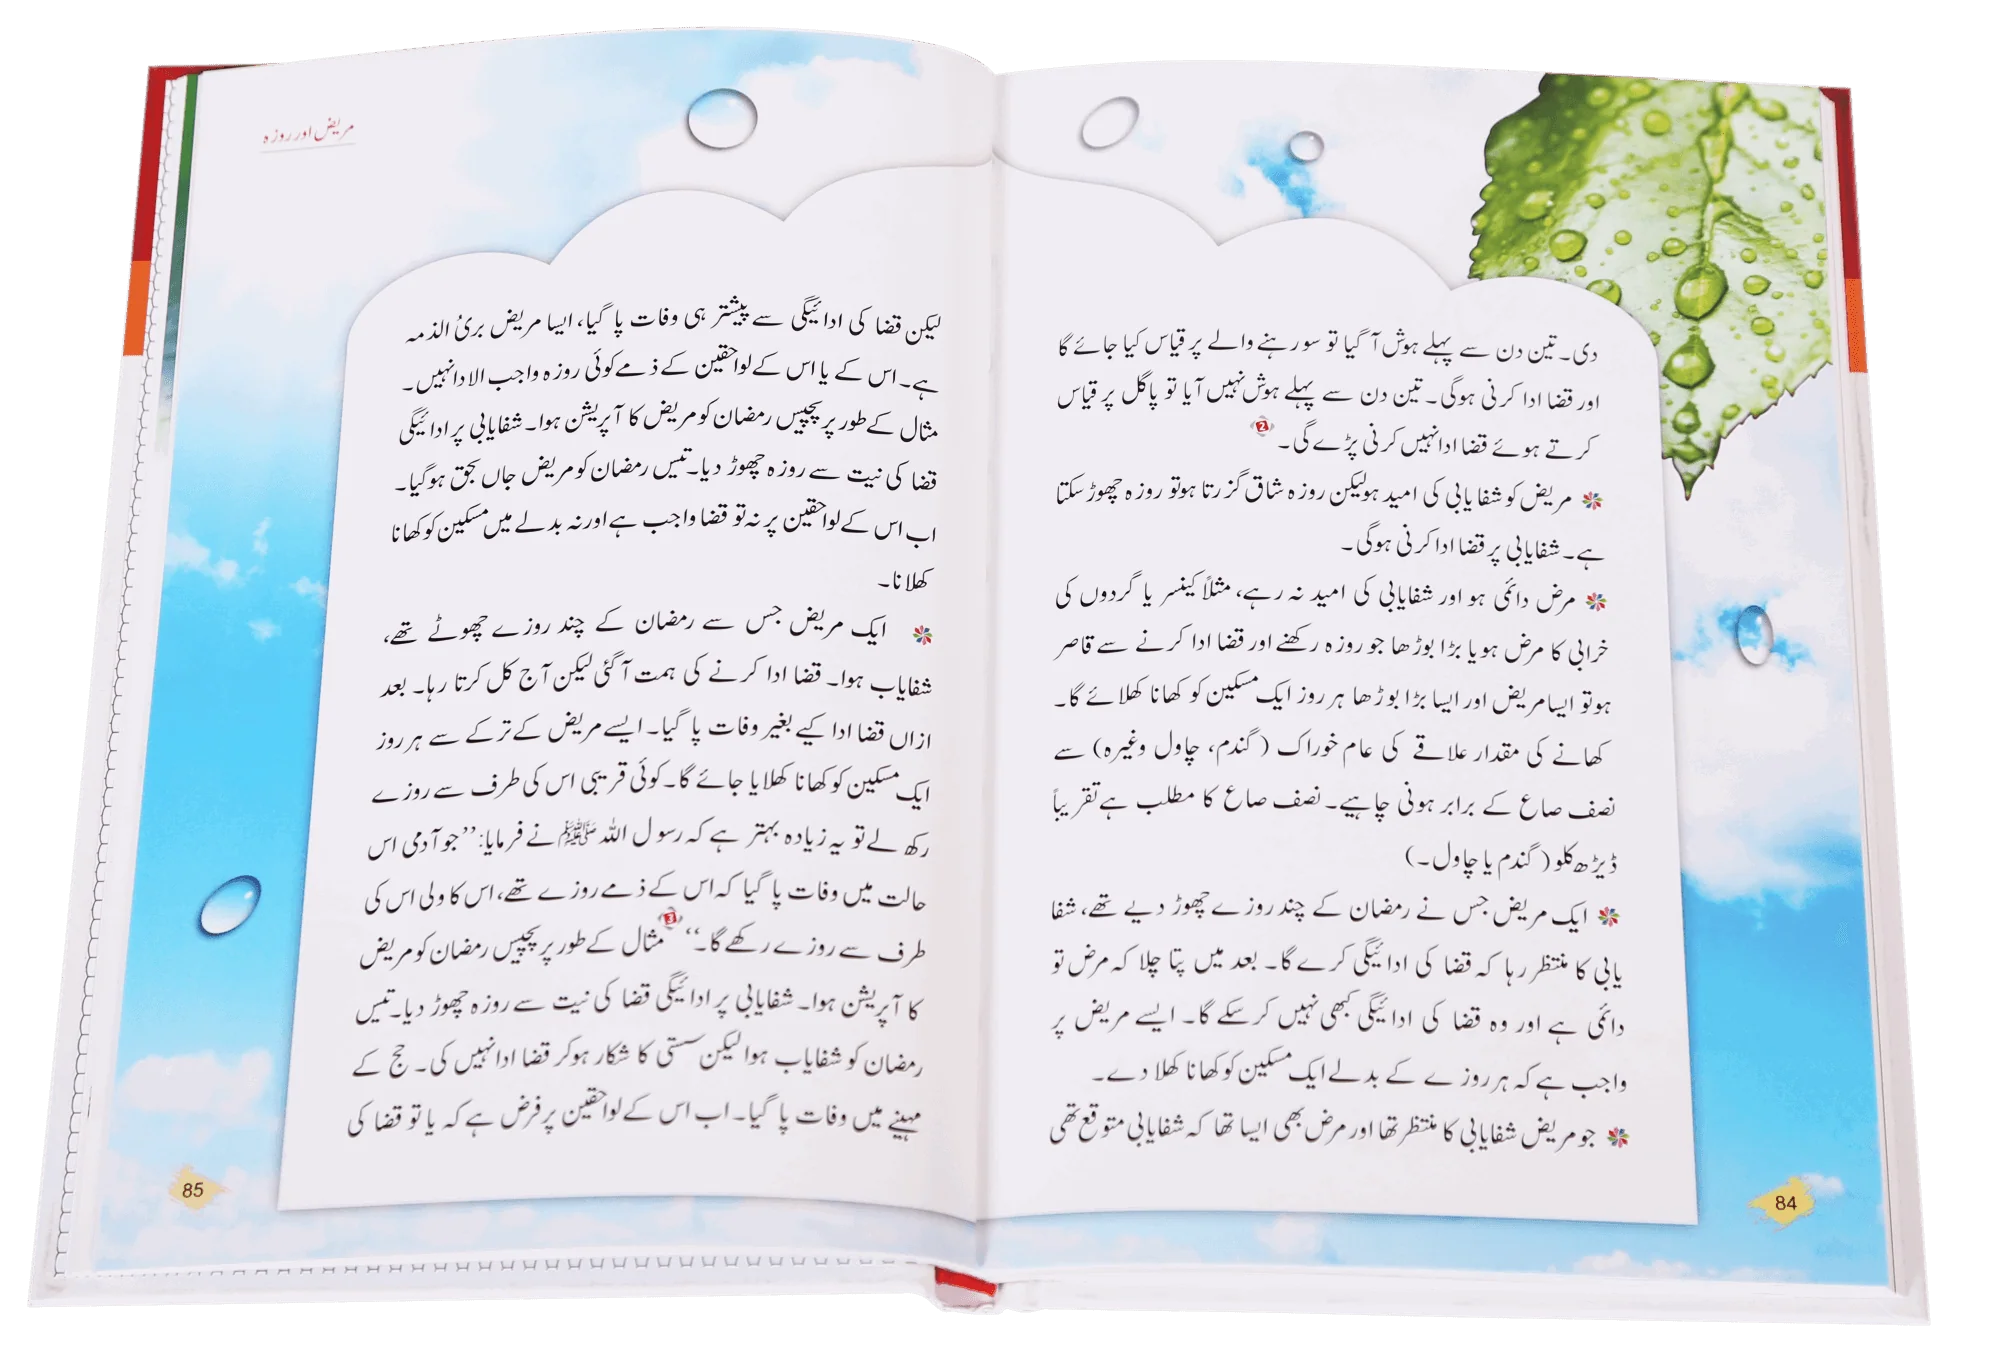 دی۔ تین دن سے پہلے ہوش آ گیا تو سو رہنے والے پر قیاس کیا جائے گا
اور قضا ادا کرنی ہوگی۔ تین دن سے پہلے ہوش نہیں آیا تو پاگل پر قیاس
کرتے ہوئے قضا ادا نہیں کرنی پڑے گی۔ 2
مریض کو شفا یابی کی امید ہو لیکن روزہ شاق گزرتا ہو تو روزہ چھوڑ سکتا
ہے۔ شفایابی پر قضا ادا کرنی ہوگی۔
مرض دائمی ہو اور شفایابی کی امید نہ رہے، مثلاً کینسر یا گردوں کی
خرابی کا مرض ہو یا بڑا بوڑھا جو روزہ رکھنے اور قضا ادا کرنے سے قاصر
ہو تو ایسا مریض اور ایسا بڑا بوڑھا ہر روز ایک مسکین کو کھانا کھلائے گا۔
کھانے کی مقدار علاقے کی عام خوراک (گندم، چاول وغیرہ) سے
نصف صاع کے برابر ہونی چاہیے۔ نصف صاع کا مطلب ہے تقریباً
ڈیڑھ کلو (گندم یا چاول۔)
ایک مریض جس نے رمضان کے چند روزے چھوڑ دیے تھے، شفا
یابی کا منتظر رہا کہ قضا کی ادائیگی کرے گا۔ بعد میں پتا چلا کہ مرض تو
دائمی ہے اور وہ قضا کی ادائیگی کبھی نہیں کر سکے گا۔ ایسے مریض پر
واجب ہے کہ ہر روزے کے بدلے ایک مسکین کو کھانا کھلا دے۔
جو مریض شفایابی کا منتظر تھا اور مرض بھی ایسا تھا کہ شفایابی متوقع تھی
84
مریض اور روزہ
لیکن قضا کی ادائیگی سے پیشتر ہی وفات پا گیا، ایسا مریض بریٔ الذمہ
ہے۔ اس کے یا اس کے لواحقین کے ذمے کوئی روزہ واجب الادا نہیں۔
مثال کے طور پر پچیس رمضان کو مریض کا آپریشن ہوا۔ شفایابی پر ادائیگی
قضا کی نیت سے روزہ چھوڑ دیا۔ تیس رمضان کو مریض جاں بحق ہو گیا۔
اب اس کے لواحقین پر نہ تو قضا واجب ہے اور نہ بدلے میں مسکین کو کھانا
کھلانا۔
ایک مریض جس سے رمضان کے چند روزے چھوٹے تھے،
شفایاب ہوا۔ قضا ادا کرنے کی ہمت آ گئی لیکن آج کل کرتا رہا۔ بعد
ازاں قضا ادا کیے بغیر وفات پا گیا۔ ایسے مریض کے ترکے سے ہر روز
ایک مسکین کو کھانا کھلایا جائے گا۔ کوئی قریبی اس کی طرف سے روزے
رکھ لے تو یہ زیادہ بہتر ہے کہ رسول اللہ ﷺ نے فرمایا: ’’جو آدمی اس
حالت میں وفات پا گیا کہ اس کے ذمے روزے تھے، اس کا ولی اس کی
طرف سے روزے رکھے گا۔‘‘ 3 مثال کے طور پر پچیس رمضان کو مریض
کا آپریشن ہوا۔ شفایابی پر ادائیگی قضا کی نیت سے روزہ چھوڑ دیا۔ تیس
رمضان کو شفایاب ہوا لیکن سستی کا شکار ہو کر قضا ادا نہیں کی۔ حج کے
مہینے میں وفات پا گیا۔ اب اس کے لواحقین پر فرض ہے کہ یا تو قضا کی
85